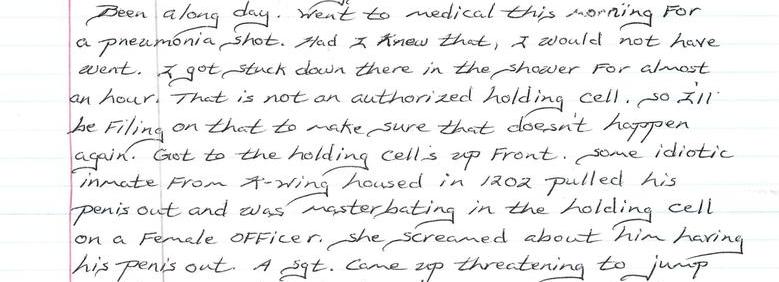 Been a long day. Went to medical this morning For
a pneumonia shot. Had I Knew that, I would not have
went. I got stuck down there in the shower For almost
an hour. That is not an authorized holding cell. so I'll
be Filing on that to make sure that doesn't happen
again. Got to the holding cell's up Front. some idiotic
inmate From K-wing housed in 1202 pulled his
penis out and was masterbating in the holding cell
on a Female OFFicer. she screamed about him having
his penis out. A sgt. Came up threatening to jump